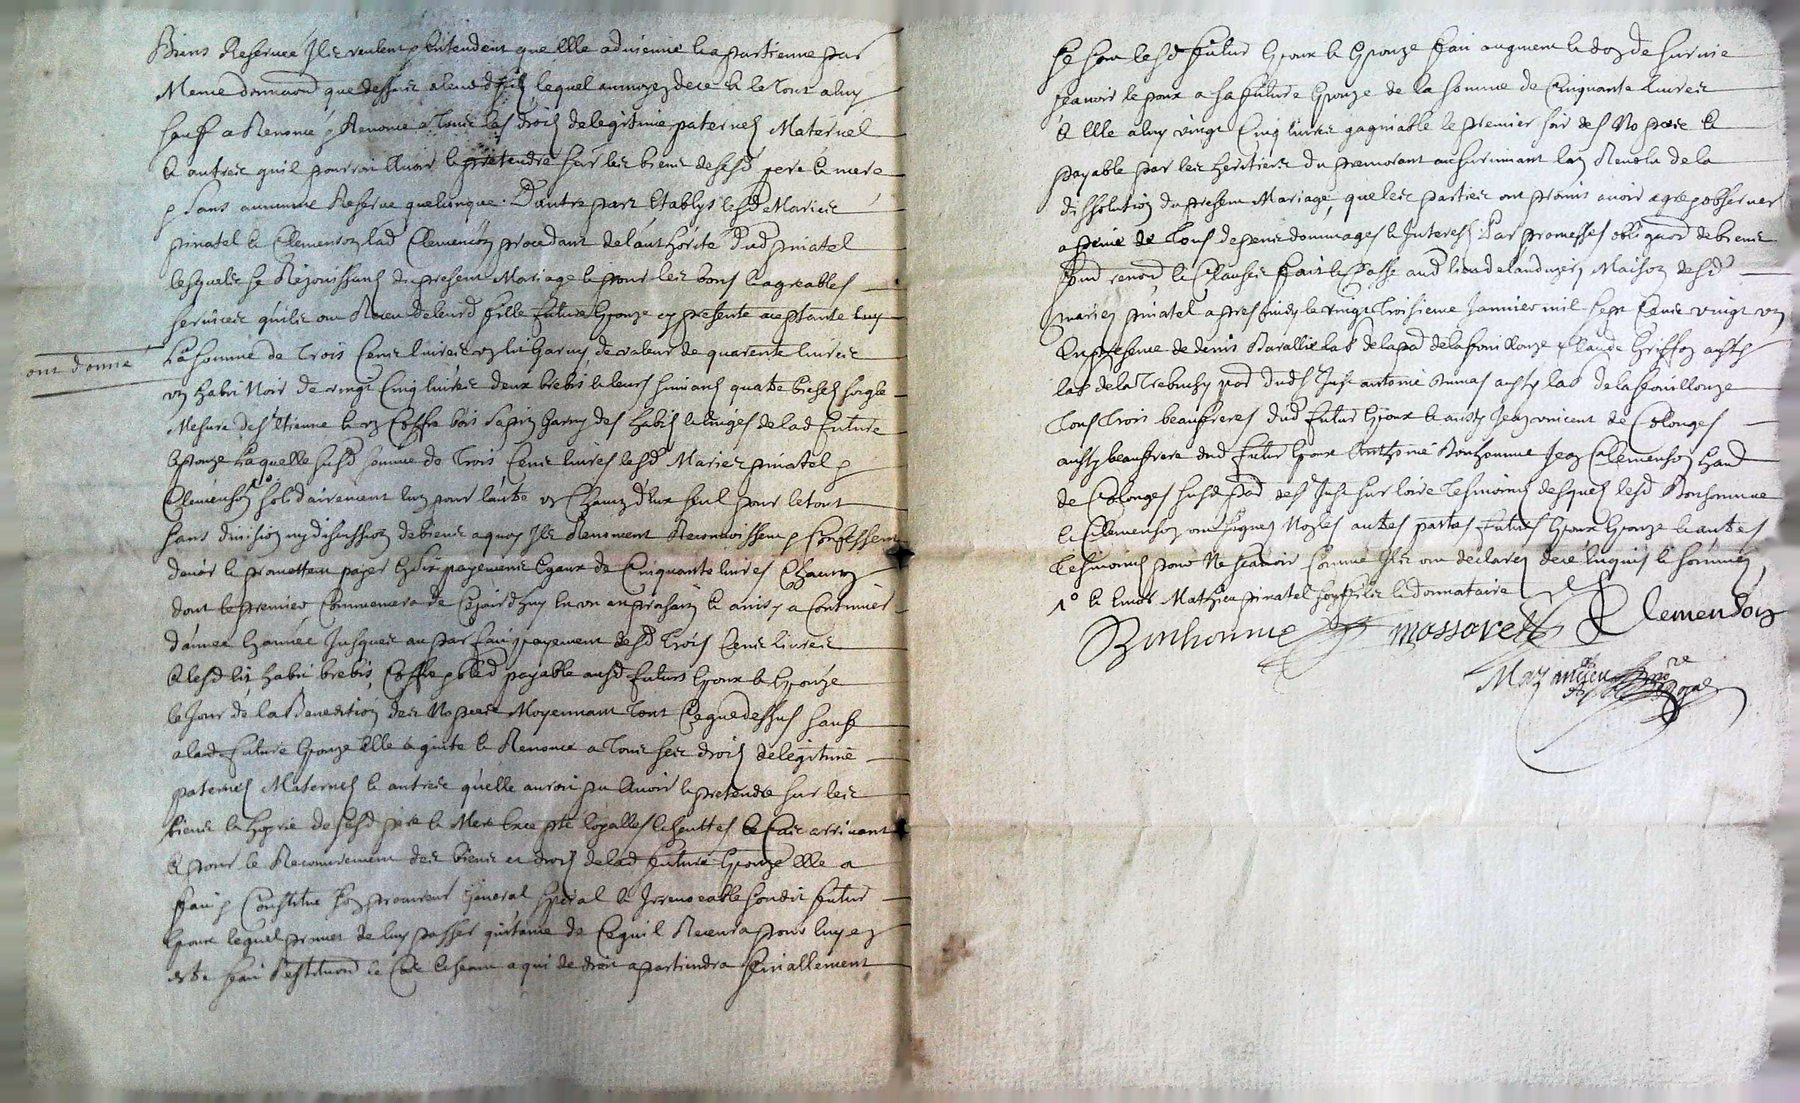 Biens Reservée Ilz veulent & entendent que Elle advienne & apartienne par
Meme donnaon que dessus aleurd filz lequel moyen dece & le Tout a luy
sauf a Renoncé & Renonce a Tous les droitz delegitime paternel Maternel
& autres quil pourroit Avoir & pretendre sur les biens desesd pere & mere
& sans aucunne Reserve quelconque. Dautre part Establys lesd Mariés
pinatel & Clemenson lad Clemenson procedant de lauthorité dud pinatel
lesquelz se Rejouissans du present Mariage & pour les bons & agreables
services quilz ont Receu de leurd fille future Epouze cy presente acceptante luy
ont donné
La somme de Trois Cens livres un lit Garny de valeur de quarente livres
un habit Noir de vingt Cinq livres deux brebis & leurs suivans quattre bichetz soigle
Mesure de st Etienne & un Coffre bois sapin Garny des habits & linges de lad future
Epouze Laquelle susd somme de Trois Cens livres lesd Mariez pinatel &
Clemenson 1º solidairement lun pour lautre un Chacun deux seul pour le tout
sans division ny discussion de biens a quoy Ilz Renoncent Reconnoissent & Confessent
devoir & promettent payer En six payements Egaux de Cinquante livres Chacun
dont le premier Commencera de Cejourdhuy en un an prochain & ainsy a Continuer
dannée En année Jusques au parfait payement desd Trois Cens livres
& lesd lit habit brebis, Coffre & bled payable ausd futurs Epoux & Epouze
le Jour de la Benediction des Nopces Moyennant Tout Ce que dessus sauf
a lad future Epouze Elle a quitté & Renoncé a Tous ses droitz delegitime
paternel Maternel & autres quelle auroit pu Avoir & pretendre sur les
biens & hoyrie de sesd pere & Mere Excepté loyalles Escheuttes le Cas arrivant
& pour le Recouvrement des biens et droitz de lad future Epouze Elle a
fait & Constitué son procureur General special & Irrevocable sondit futur
Epoux lequel promet de luy passer quitance de Ce quil Recevra pour luy en
estre fait Restitution le Cas Escheant a qui de droit apartiendra finallement
se sont lesd futur Epoux & Epouze fait augment & don de survie
scavoir lepoux a sa future Epouze de la somme de Cinquante livres
& Elle a luy vingt Cinq livres gagniable le premier soir des Nopces &
payable par les heritiers du premorant au survivant lan Revolu de la
dissolution du present Mariage, que les parties ont promis avoir agré & observer
a peine de Tous depens dommages & Interestz Par promesses obligaon de biens
soud renond & Clauses fait & Passé aud lieu delanduzin Maison desd
mariez pinatel apres midy le vingt Troisieme Janvier mil sept Cens vingt un
En presence de denis Barallie lab de la pad de la fouillouze Claude Griffon aussy
lab de la Trebuchy pad dud st Just antoine Dumas aussy lab de la fouillouze
Tous Trois beaufreres dud futur Epoux & aussy Jean vincent de Collonges
aussy beaufrere dud futur Epoux Anthoine Bonhomme Jean Clemenson hand
de Collonges susd pad de st Just sur loire Tesmoins desquels lesd Bonhomme
& Clemenson ont signez Non les autres parties futurs Epoux Epouze & autres
Tesmoins pour Ne scavoir Comme Ilz ont declarez de ce Enquis & sommez,
1º & Encor Mathieu pinatel son filz & donnataire
Bonhomme massaret Clemenson
Mazancieu nre Royal